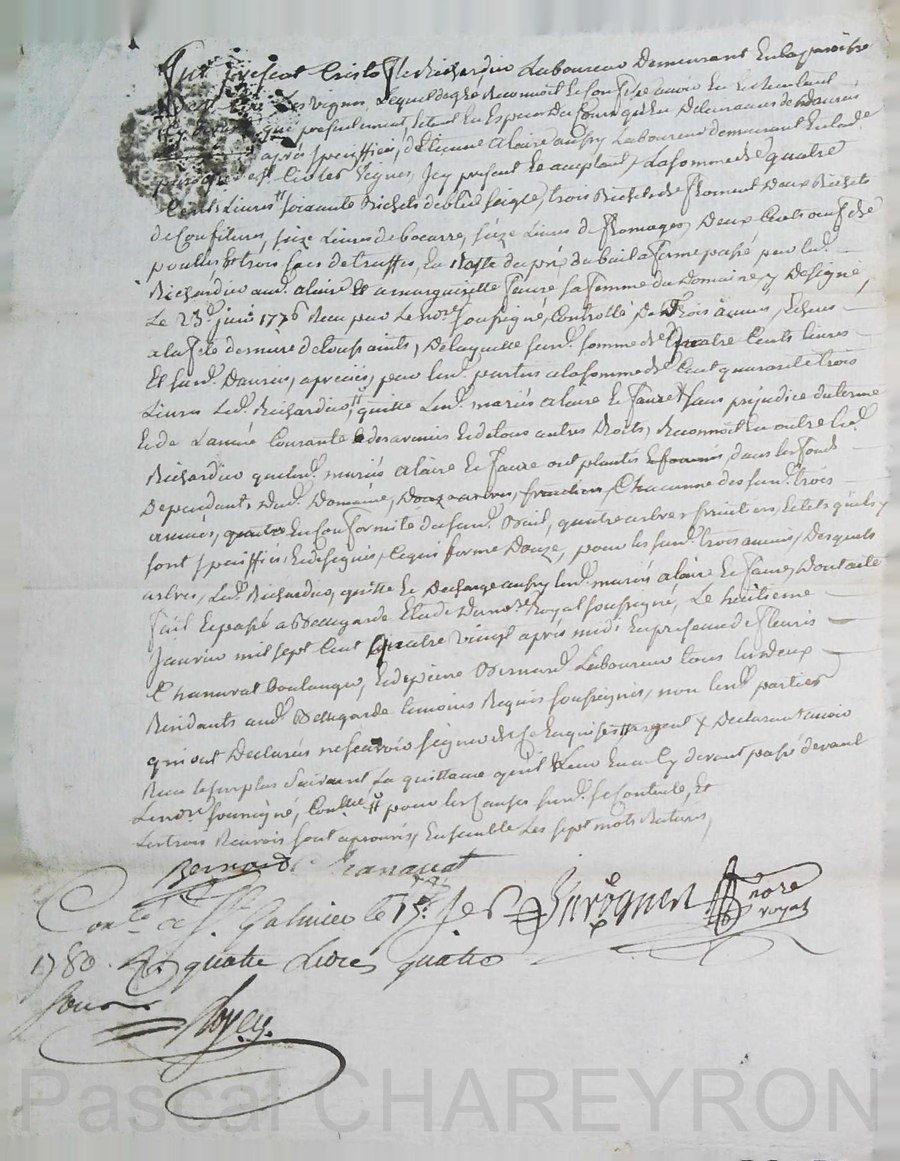 fut present Cristofle Richardier Laboureur Demeurant En la paroisse
Les vignes, Lequel de gré Reconnoit Et Confesse avoir Eu Et Recu tant
que presentement Et tant En Especes Du Cours qu'En Delivrances de danrées
après speciffiées, d'Etienne alaire aussy Laboureur demeurant En lad.
paroisse Les Vignes, Icy present Et acceptant, La somme de quatre
Cents Livres, soixante Bichets de bled seigle, trois Bichets de froment Deux Bichets
de Confitures, seize Livres de beurre, seize Livres de fromages, Deux Cents oeufs de
poulles Et trois sacs de truffes, En Reste du prix du bail a ferme passé par led.
Richardier aud. alaire Et a marguerite faure sa femme du Domaine y Designé
Le 23e. juin 1776 Recu par Le nore. soussigné, Controllé De trois années, Echues
a la fete derniere de toussaints, De laquelle susd. somme de quatre Cents livres
Et susd. Danrées, apreciées, par lesd. parties a la somme de Cent quarante trois
Livres Led. Richardier quitte Lesd. mariés alaire Et faure sans prejudice du terme
Et de L'année Courante Et des avenir Et de tous autres Droits, Reconnoit En outre led.
Richardier que lesd. mariés alaire Et faure ont plantés dans les fonds
Dependants Dud. Domaine, Chacunne des susd. trois
années, En Conformité du susd. Bail, quatre arbres fruitiers, Et tels qu'ils y
sont speciffiés Et designés, Ce qui forme Douze, pour les susd. trois années, Desquels
arbres, Led. Richardier, quitte Et Decharge aussy lesd. mariés alaire Et faure, Dont acte
fait Et passé a Bellegarde Etude Du nore. Royal soussigné, Le huitieme
Janvier mil sept Cent quatre vingt après midi En presence de fleuris
Chanavat Boulanger, Et de pierre Bernard Laboureur tous Les deux
Residants aud. Bellegarde temoins Requis soussignés, non lesd. parties
qui ont Declarés ne scavoir signer de ce Enquises
Recu Le surplus suivant La quittance qu'il Leur En a Cy devant passé devant
Le nore. soussigné, Conttée. pour les Causes susd. se Contente, Et
Les trois Renvois sont aprouvés, Ensemble Les sept mots Raturés,
Bernard Chanavat
Conlé a St. Galmier le 15e.
nore
royal
1780 R quatre Livres quatre
sous